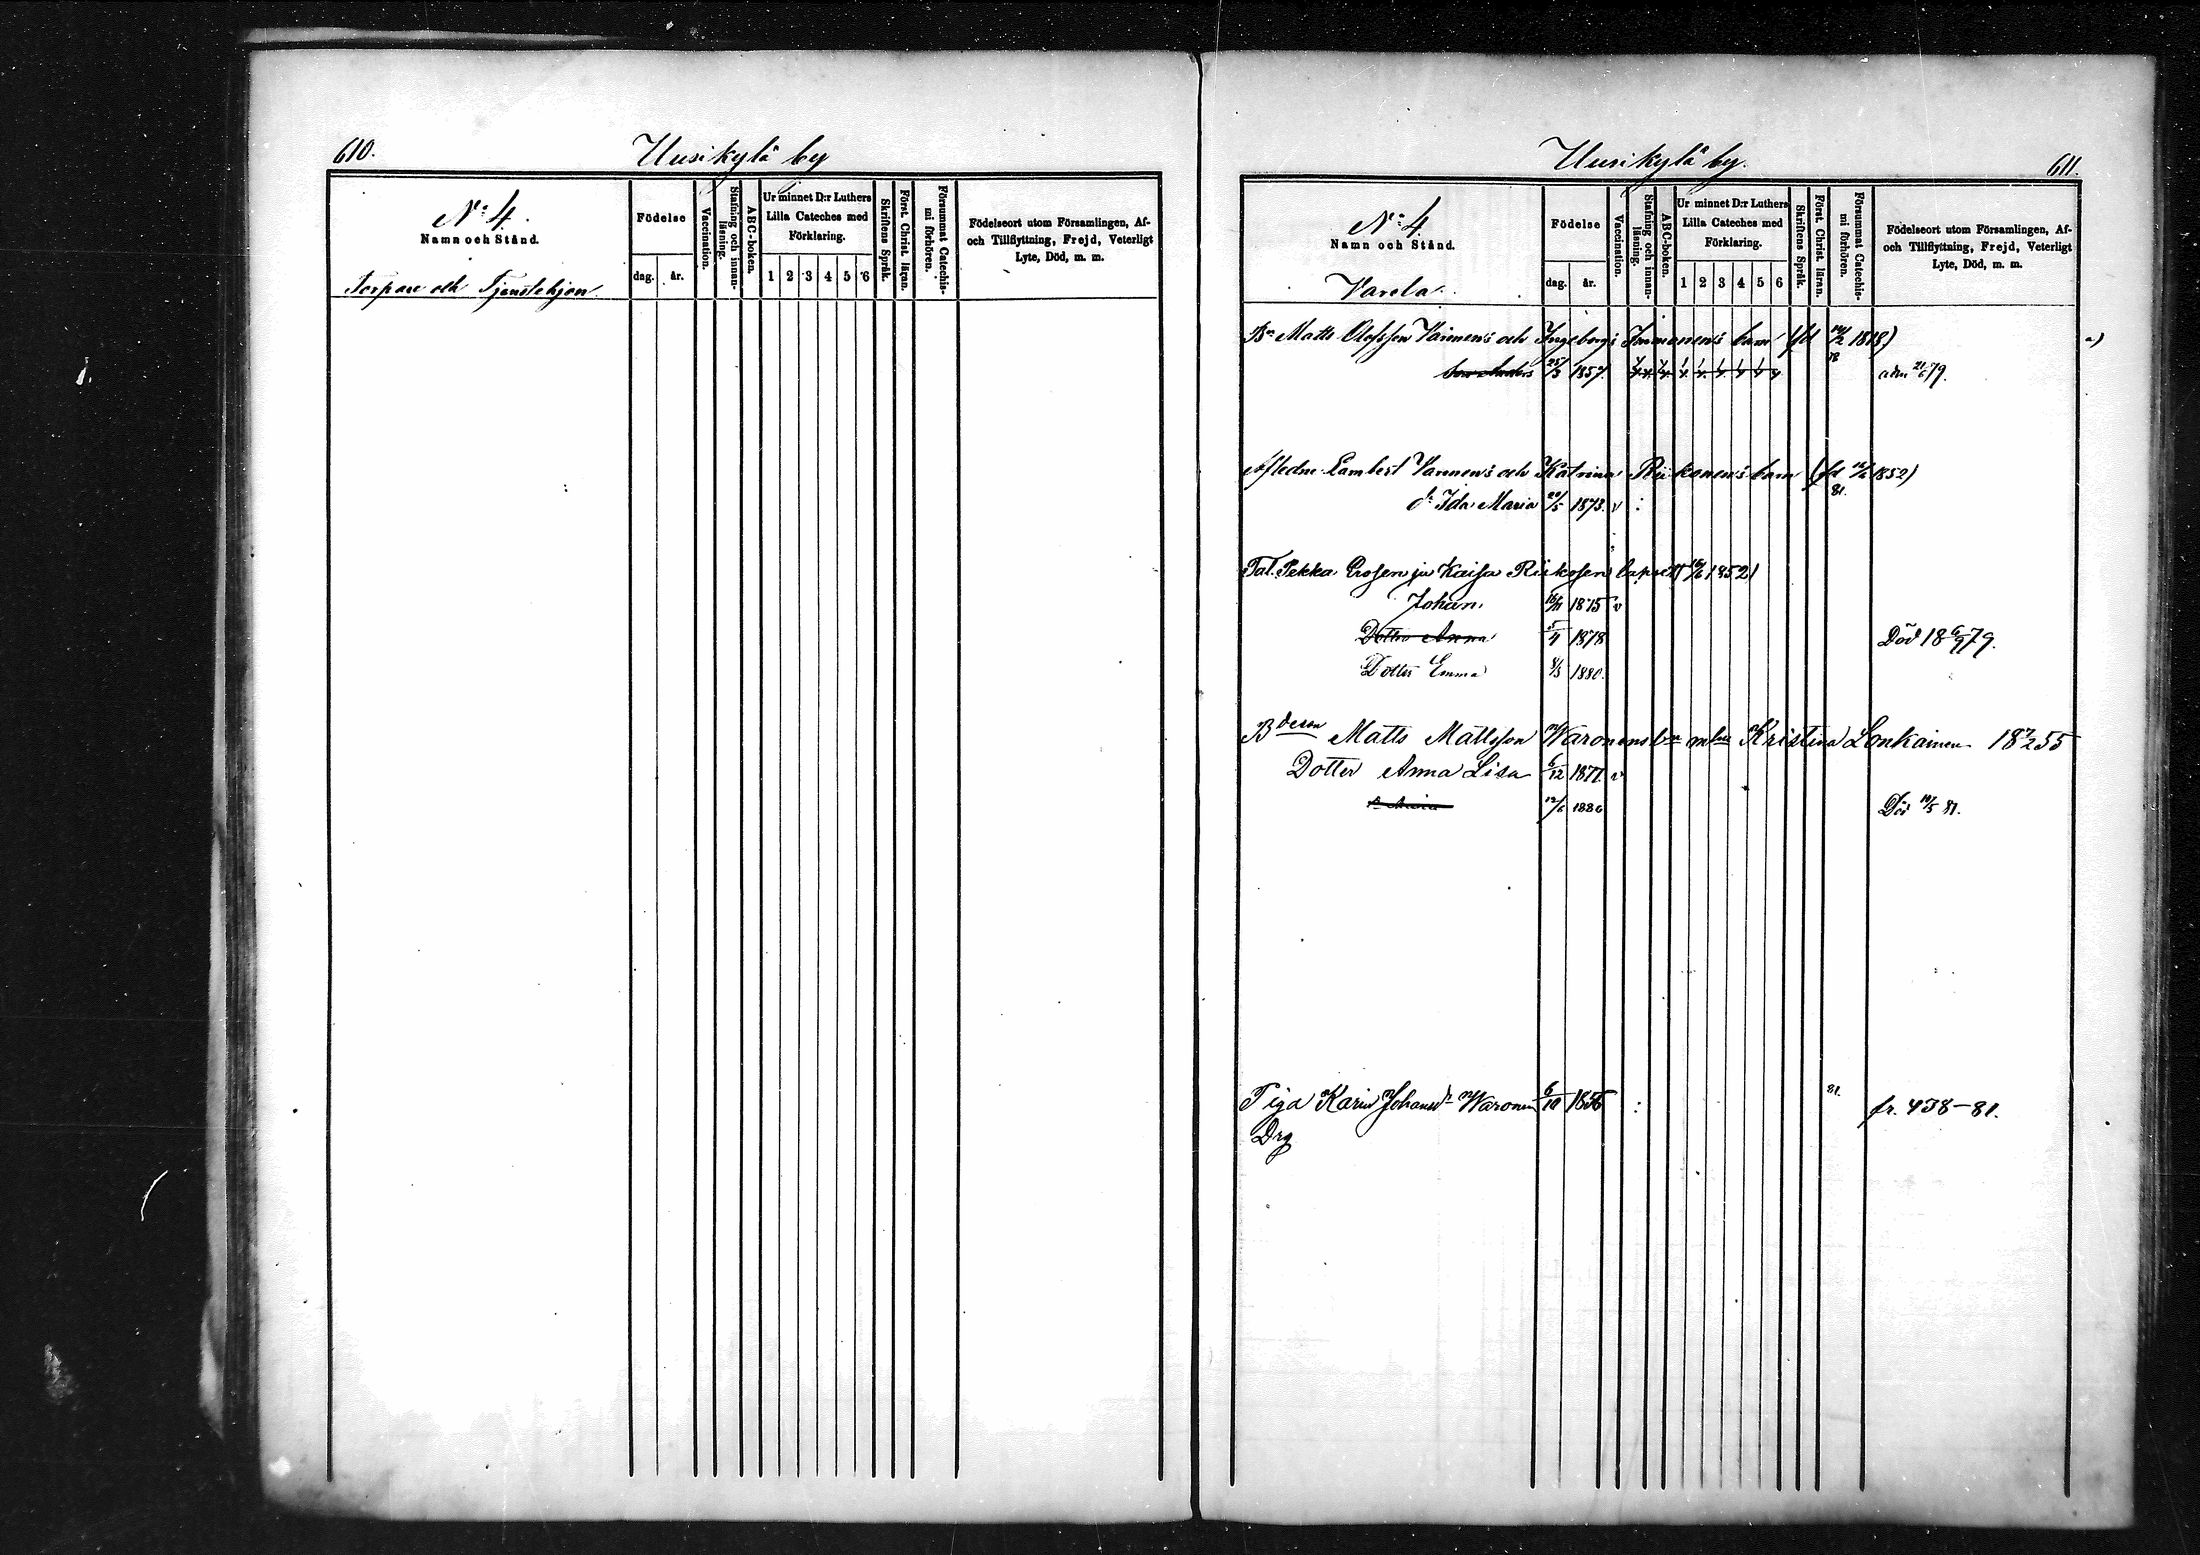 610.
Uusikylä by
N:o 4.
Namn och Stånd.
Torpare och Tjenstehjon.
Födelse
dag. år.
Vaccination.
Stafning och innan-läsning.
ABC-boken.
Ur minnet D:r Luthers
Lilla Cateches med
Förklaring.
1 2 3 4 5 6
Skriftens Språk.
Först. Christ. läran.
Försummat Catechis-mi förhören.
Födelseort utom Församlingen, Af-
och Tillflyttning, Frejd, Veterligt
Lyte, Död, m. m.
Uusikylä by.
611.
N:o 4.
Namn och Stånd.
Varola
Födelse
dag. år.
Vaccination.
Stafning och innan-läsning.
ABC-boken.
Ur minnet D:r Luthers
Lilla Cateches med
Förklaring.
1 2 3 4 5 6
Skriftens Språk.
Först. Christ. läran.
Försummat Catechis-mi förhören.
Födelseort utom Församlingen, Af-
och Tillflyttning, Frejd, Veterligt
Lyte, Död, m. m.
Matts Olofsson och Ingeborg barn 1818)
1857. 79.
Afledne Lambert och Katrina barn 1852)
81.
d:r Ida Maria 1873. v
Tal. Pekka ja Kaisa lapset 1852)
Johan. 1875 v
Dotter Anna 5/4 1878 Död 18 6/9 79.
Dotter Emma 8/3 1880.
Matts Mattsson Waronens Kristina Lonkainen 55
Dotter Anna Lisa 6/12 1877. v
12/6 1880 Död 10/5 81.
Piga Karin Johansd:r Waronen 6/10 1856 81. fr. 438-81.
Drg